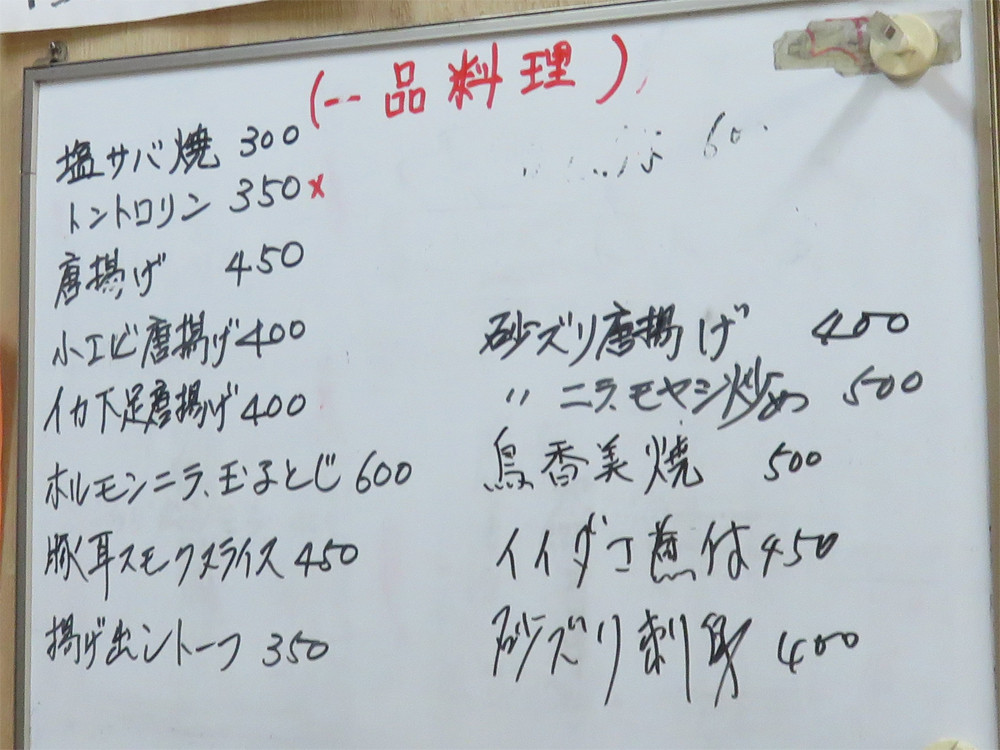 (一品料理)
塩サバ焼 300
トントロリン 350×
唐揚げ 450
小エビ唐揚げ 400
イカ下足唐揚げ 400
ホルモンニラ、玉子とじ 600
豚耳スモクスライス 450
揚げ出シトーフ 350
砂ズリ唐揚げ 400
〃 ニラ、モヤシ炒め 500
鳥香美焼 500
イイダコ煮付 450
砂ズリ刺身 400